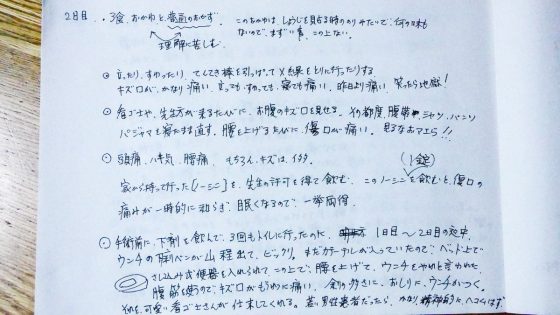 2日目. ・3食、おかゆと、普通のおかず. このおかゆは しょうじを貼る時ののりみたいで、何の味も
理解に苦しむ. ないので、まずい事、この上ない.
・立ったり、すわったり、てんてき棒を引っぱってX線をとりに行ったりする
キズ口が、かなり痛い、立っても、すわっても、寝ても痛い、昨日より痛い、笑ったら地獄!
・看ゴ士や、先生方が来るたびに、お腹のキズ口を見せる. その都度、腹帯、シャツ、パンツ
パジャマを寝たまま直す. 腰を上げるたびに、傷口が痛い. 見るなオマエら!!
・頭痛、ハキ気、腰痛. もちろん、キズは、イタタ.
(1錠)
家から持って行った[ノーシン]を、先生の許可を得て飲む. このノーシンを飲むと、傷口の
痛みが一時的に和らぎ、眠くなるので、一挙両得.
・手術前に、下剤を飲んで、3回もトイレに行ったのに、1日目〜2日目の
ウンチの が山程出て、ビックリ. まだカテーテルが入っていたので、ベッド上で
さし込み式便器を入れられて、この上で、腰を上げて、ウンチをやれと言われた
腹筋を使うので、キズ口がもろに痛い. おしりに、ウンチがつく.
それを、可愛い看ゴ士さんが仕末してくれる. 若い男性患者だったら、かなり精神的に、ヘコムはず